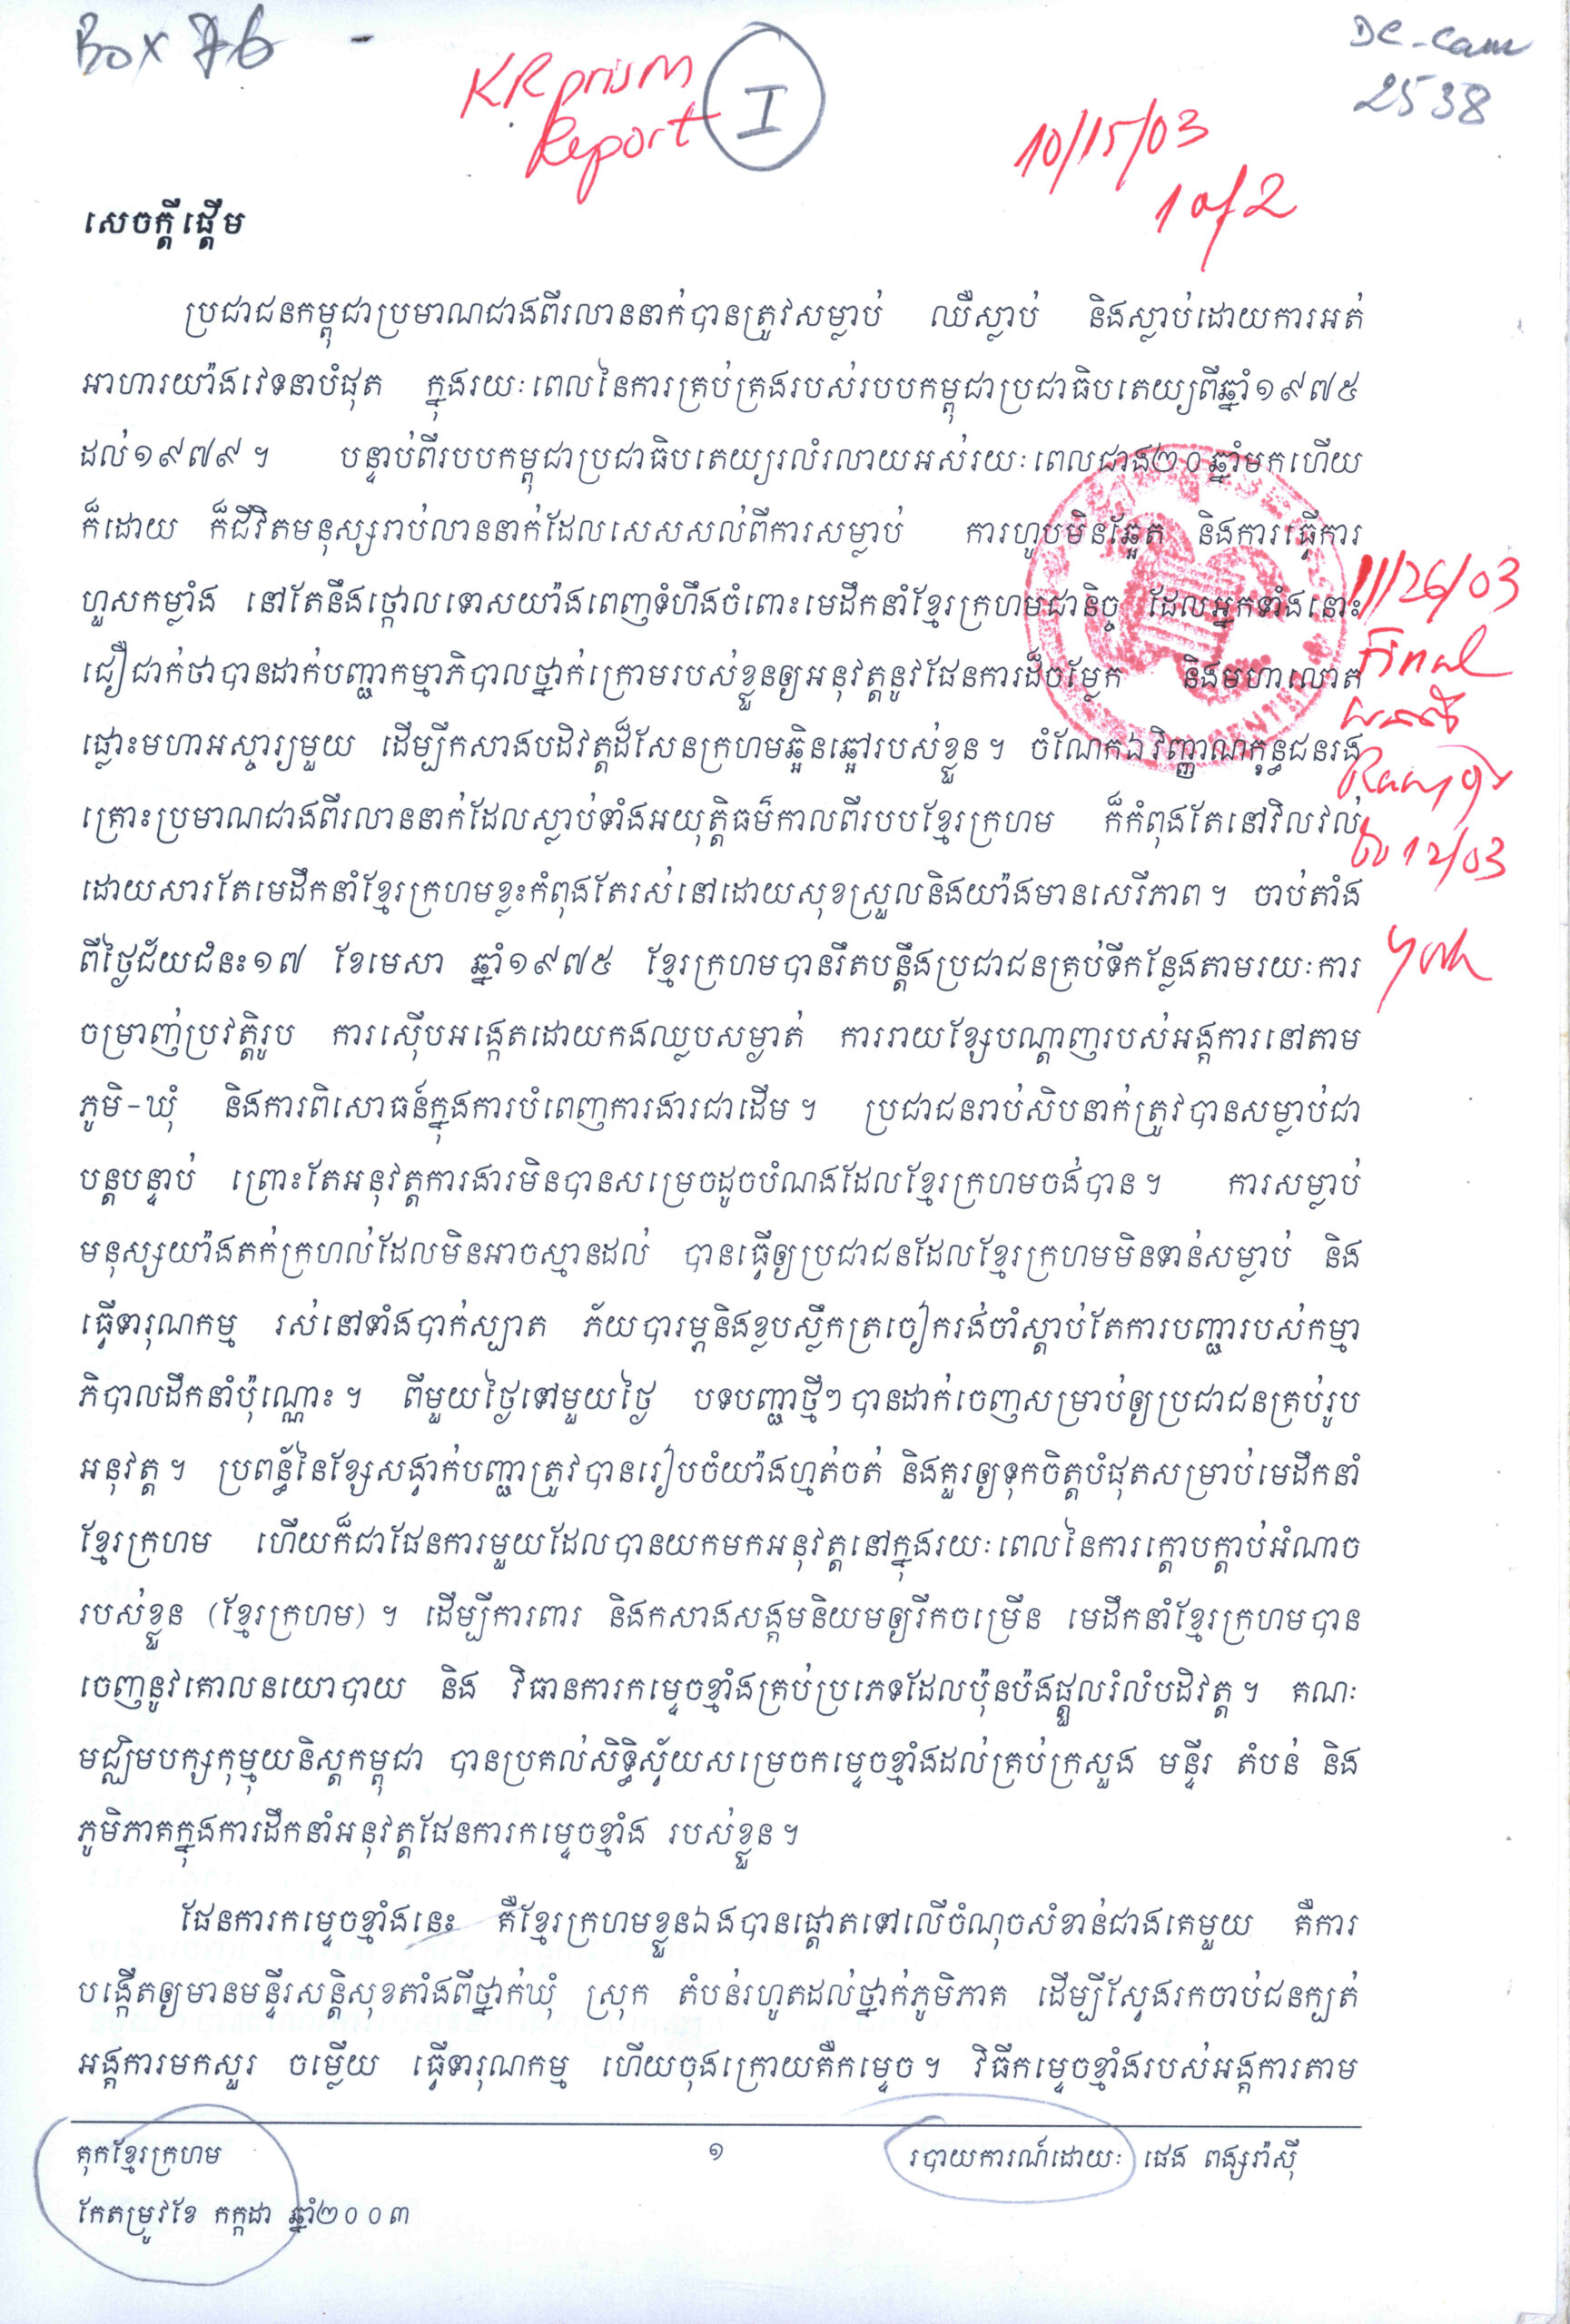 Box 76 -
KR prism
Report
I
DC-Cam
2538
10/15/03
1 of 2
សេចក្ដីផ្ដើម
ប្រជាជនកម្ពុជាប្រមាណជាងពីរលាននាក់បានត្រូវសម្លាប់ ឈឺស្លាប់ និងស្លាប់ដោយការអត់
អាហារយ៉ាងវេទនាបំផុត ក្នុងរយៈពេលនៃការគ្រប់គ្រងរបស់របបកម្ពុជាប្រជាធិបតេយ្យពីឆ្នាំ១៩៧៥
ដល់១៩៧៩។ បន្ទាប់ពីរបបកម្ពុជាប្រជាធិបតេយ្យរលំរលាយអស់រយៈពេលជាង២០ឆ្នាំមកហើយ
ក៏ដោយ ក៏ជីវិតមនុស្សរាប់លាននាក់ដែលសេសសល់ពីការសម្លាប់ ការហូបមិនឆ្អែត និងការធ្វើការ
ហួសកម្លាំង នៅតែនឹងថ្កោលទោសយ៉ាងពេញទំហឹងចំពោះមេដឹកនាំខ្មែរក្រហមជានិច្ច ដែលអ្នកទាំងនោះ
ជឿជាក់ថាបានដាក់បញ្ជាកម្មាភិបាលថ្នាក់ក្រោមរបស់ខ្លួនឲ្យអនុវត្តនូវផែនការដ៏ចម្លែក និងមហាលោត
ផ្លោះមហាអស្ចារ្យមួយ ដើម្បីកសាងបដិវត្តដ៏សែនក្រហមឆ្អិនឆ្អៅរបស់ខ្លួន។ ចំណែកឯវិញ្ញាណក្ខន្ធជនរង
គ្រោះប្រមាណជាងពីរលាននាក់ដែលស្លាប់ទាំងអយុត្តិធម៌កាលពីរបបខ្មែរក្រហម ក៏កំពុងតែនៅវិលវល់
ដោយសារតែមេដឹកនាំខ្មែរក្រហមខ្លះកំពុងតែរស់នៅដោយសុខស្រួលនិងយ៉ាងមានសេរីភាព។ ចាប់តាំង
ពីថ្ងៃជ័យជំនះ១៧ ខែមេសា ឆ្នាំ១៩៧៥ ខ្មែរក្រហមបានរឹតបន្តឹងប្រជាជនគ្រប់ទីកន្លែងតាមរយៈការ
ចម្រាញ់ប្រវត្តិរូប ការស៊ើបអង្កេតដោយកងឈ្លបសម្ងាត់ ការរាយខ្សែបណ្ដាញរបស់អង្គការនៅតាម
ភូមិ-ឃុំ និងការពិសោធន៍ក្នុងការបំពេញការងារជាដើម។ ប្រជាជនរាប់សិបនាក់ត្រូវបានសម្លាប់ជា
បន្តបន្ទាប់ ព្រោះតែអនុវត្តការងារមិនបានសម្រេចដូចបំណងដែលខ្មែរក្រហមចង់បាន។ ការសម្លាប់
មនុស្សយ៉ាងតក់ក្រហល់ដែលមិនអាចស្មានដល់ បានធ្វើឲ្យប្រជាជនដែលខ្មែរក្រហមមិនទាន់សម្លាប់ និង
ធ្វើទារុណកម្ម រស់នៅទាំងបាក់ស្បាត ភ័យបារម្ភនិងខ្លបស្លឹកត្រចៀករង់ចាំស្ដាប់តែការបញ្ជារបស់កម្មា
ភិបាលដឹកនាំប៉ុណ្ណោះ។ ពីមួយថ្ងៃទៅមួយថ្ងៃ បទបញ្ជាថ្មីៗបានដាក់ចេញសម្រាប់ឲ្យប្រជាជនគ្រប់រូប
អនុវត្ត។ ប្រពន្ធ័នៃខ្សែសង្វាក់បញ្ជាត្រូវបានរៀបចំយ៉ាងហ្មត់ចត់ និងគួរឲ្យទុកចិត្តបំផុតសម្រាប់មេដឹកនាំ
ខ្មែរក្រហម ហើយក៏ជាផែនការមួយដែលបានយកមកអនុវត្តនៅក្នុងរយៈពេលនៃការក្ដោបក្ដាប់អំណាច
របស់ខ្លួន (ខ្មែរក្រហម)។ ដើម្បីការពារ និងកសាងសង្គមនិយមឲ្យរីកចម្រើន មេដឹកនាំខ្មែរក្រហមបាន
ចេញនូវគោលនយោបាយ និង វិធានការកម្ទេចខ្មាំងគ្រប់ប្រភេទដែលប៉ុនប៉ងផ្ដួលរំលំបដិវត្ត។ គណៈ
មជ្ឈិមបក្សកុម្មុយនិស្តកម្ពុជា បានប្រគល់សិទ្ធិស្វ័យសម្រេចកម្ទេចខ្មាំងដល់គ្រប់ក្រសួង មន្ទីរ តំបន់ និង
ភូមិភាគក្នុងការដឹកនាំអនុវត្តផែនការកម្ទេចខ្មាំង របស់ខ្លួន។
ផែនការកម្ទេចខ្មាំងនេះ គឺខ្មែរក្រហមខ្លួនឯងបានផ្ដោតទៅលើចំណុចសំខាន់ជាងគេមួយ គឺការ
បង្កើតឲ្យមានមន្ទីរសន្តិសុខតាំងពីថ្នាក់ឃុំ ស្រុក តំបន់រហូតដល់ថ្នាក់ភូមិភាគ ដើម្បីស្វែងរកចាប់ជនក្បត់
អង្គការមកសួរ ចម្លើយ ធ្វើទារុណកម្ម ហើយចុងក្រោយគឺកម្ទេច។ វិធីកម្ទេចខ្មាំងរបស់អង្គការតាម
11/26/03
Final
12/03
គុកខ្មែរក្រហម
១
របាយការណ៍ដោយៈ ផេង ពង្សរ៉ាស៊ី
កែតម្រូវខែ កក្កដា ឆ្នាំ២០០៣